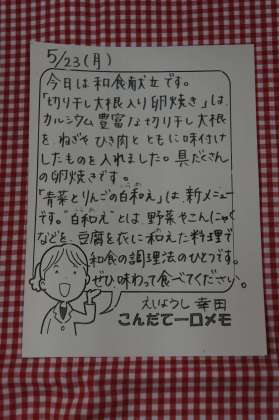 5/23(月)
今日は和食献立です。
「切り干し大根入り卵焼き」は、
カルシウム豊富な切り干し大根
を、ねぎやひき肉とともに味付け
したものを入れました。具だくさん
の卵焼きです。
「青菜とりんごの白和え」は、新メニュー
です。"白和え"とは 野菜やこんにゃく
などを、豆腐を衣に和えた料理で
和食の調理法のひとつです。
ぜひ、味わって食べてください。
えいようし 幸田
こんだて一口メモ